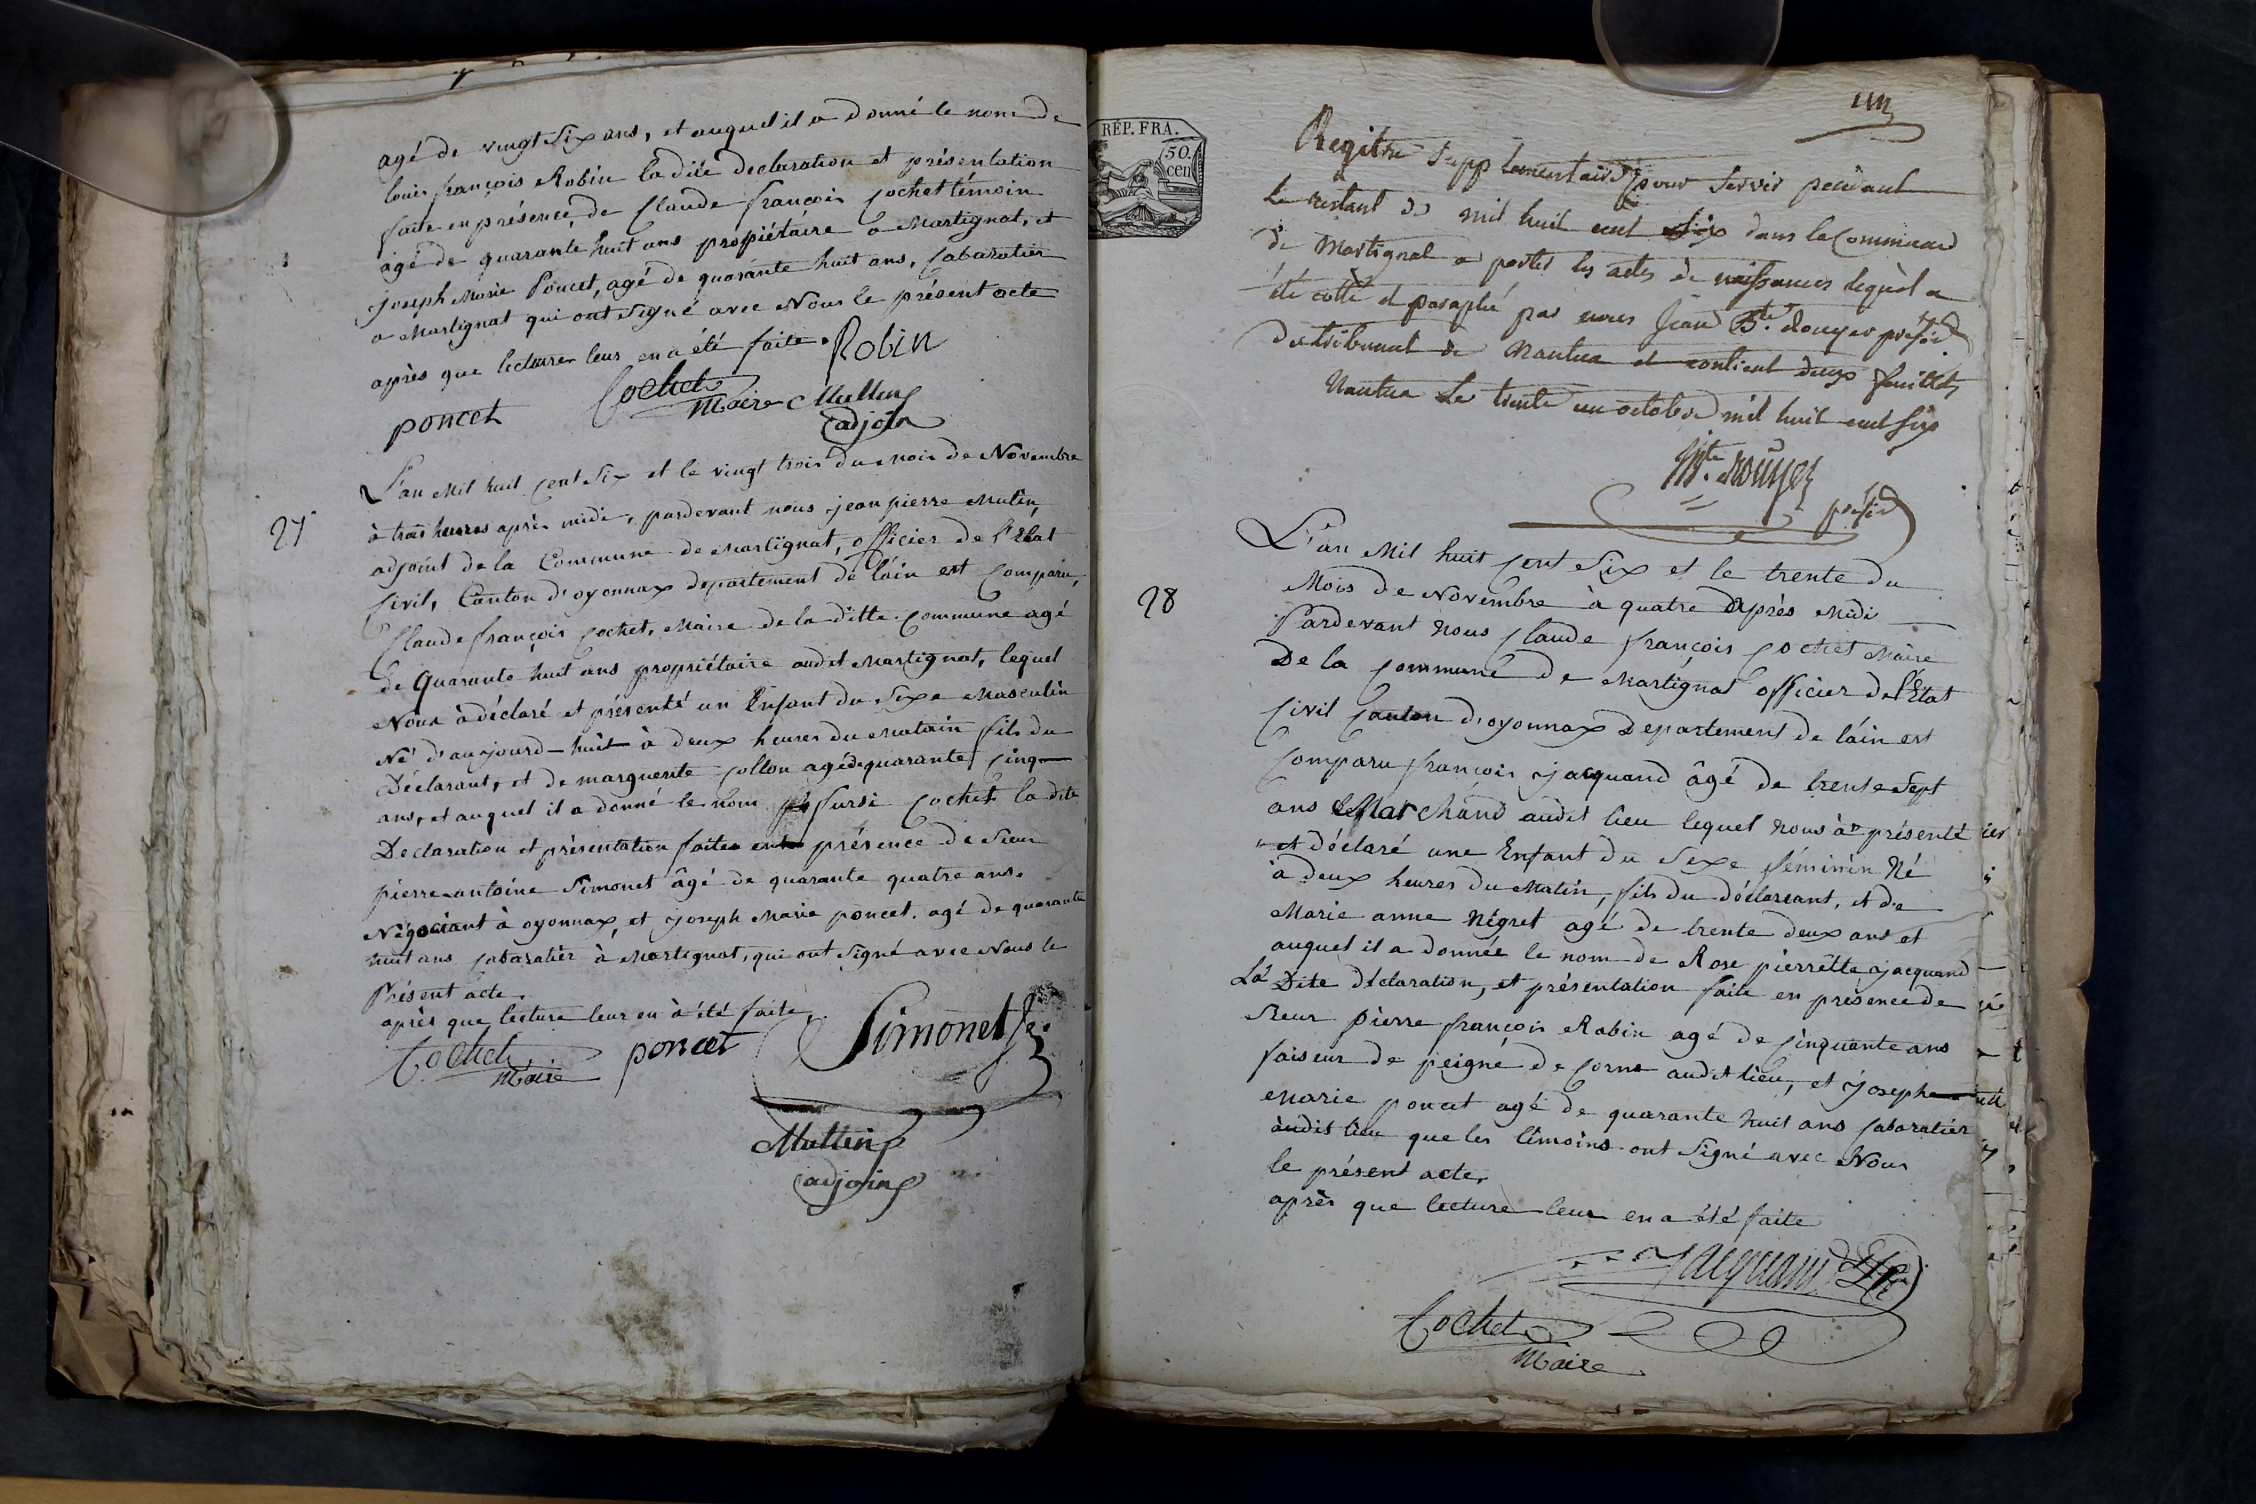 agé de vingt Six ans, et auquel il a Donné le nom de
louis françois Robin la dite declaration et présentation
faite en présence de Claude françois Cochet témoin
agé de quarante huit ans propiétaire a Martignat, et
joseph Marie Poncet, agé de quarante huit ans, Cabaratier
a Martignat qui ont Signé avec Nous le présent acte
après que lecture leur en a été faite. Robin
poncet Cochet Maire Mutten
adjoin
27
L'an Mil huit Cent Six et le vingt trois du mois de Novembre
à trois heures après midi, pardevant nous jean pierre Mutin,
adjoint de la Commune de Martignat, officier de l'Etat
Civil, Canton d'oyonnax departement de láin est Comparu,
Claude françois Cochet, Maire de la ditte Commune agé
de Quarante huit ans propriétaire audit Martignat, lequel
Nous à déclaré et présenté un Enfant du Sexe Masculin
Né d'aujourd-huit à deux heures du matain fils du
Déclarant, et de marguerite Collon agé de quarante Cinq
ans, et auquel il a donné le nom Sursi Cochet la dite
Declaration et présentation faite en présence de Sieur
pierre antoine Simonet âgé de quarante quatre ans.
Négociant à oyonnax, et joseph Marie poncet. agé de quarante
huit ans Cabaratièr à Martignat, qui ont Signé avec Nous le
Présent acte.
après que lecture leur en à été faite,
Cochet Maire poncet Simonet
Mutten
adjoin
RÉP. FRA.
50.
cen
un
Regitre Supplementaire pour Servir pendant
le restant de mil huit cent Six dans la Commune
de Martignat a porter les actes de naissances lequel a
été cotté et paraphé par nous Jean Bte. Rouyer présid
du tribunal de Nantua et contient deux feuillets
Nantua Le trente un octobre mil huit cent Six
Bte. Rouyer
présid
28
L'an Mil huit Cent Six et le trente du
Mois de Novembre à quatre Après Midi
Pardevant Nous Claude françois Cochet Maire
De la Commune De Martignat officier de l'Etat
Civil Canton d'oyonnax Departement de láin est
Comparu françois jacquand âgé de trente Sept
ans Marchand audit lieu lequel nous à présenté
et déclaré une Enfant du Sexe féminin Né
à deux heures du Matin, fils du déclareant, et de
Marie anne Négret agé de trente deux ans et
auquel il a donnée le nom de Rose pierrette jacquand
La Dite déclaration, et présentation faite en présence de
Sieur pierre françois Robin agé de Cinquante ans
faiseur de peigne de Corne audit lieu, et joseph
Marie poncet agé de quarante huit ans Cabaratiér
àudit lieu que les témoins ont Signé avec Nous
le présent acte.
après que lecture leur en a été faite
Jacquand
Cochet
Maire